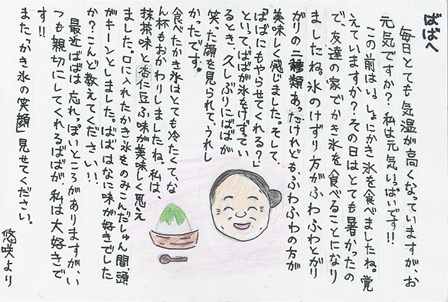 ばばへ
毎日とても気温が高くなっていますが、お
元気ですか？私は元気いっぱいです‼
この前は、いっしょにかき氷を食べましたね。覚
えていますか？その日はとても暑かったの
で、友達の家でかき氷を食べることになり
ましたね。氷のけずり方がふわふわとがり
がりの二種類あったけれども、ふわふわの方が
美味しく感じました。そして、
「ばばにもやらせてくれる？」
といって、ばばが氷をけずってい
るとき、久しぶりにばばが
笑った顔を見られて、うれし
かったです。
食べたかき氷はとても冷たくて、な
ん杯もおかわりしましたね。私は、
抹茶味と杏に豆ふ味が美味しく思え
ました。口に入れたかき氷をのみこんだしゅん間、頭
がキーンとしました。ばばはなに味が好きでした
か？こんど教えてください‼
最近ばばは、忘れっぽいところがありますが、い
つも親切にしてくれるばばが、私は大好きで
す‼
また、かき氷の笑顔、見せてください。
悠咲より